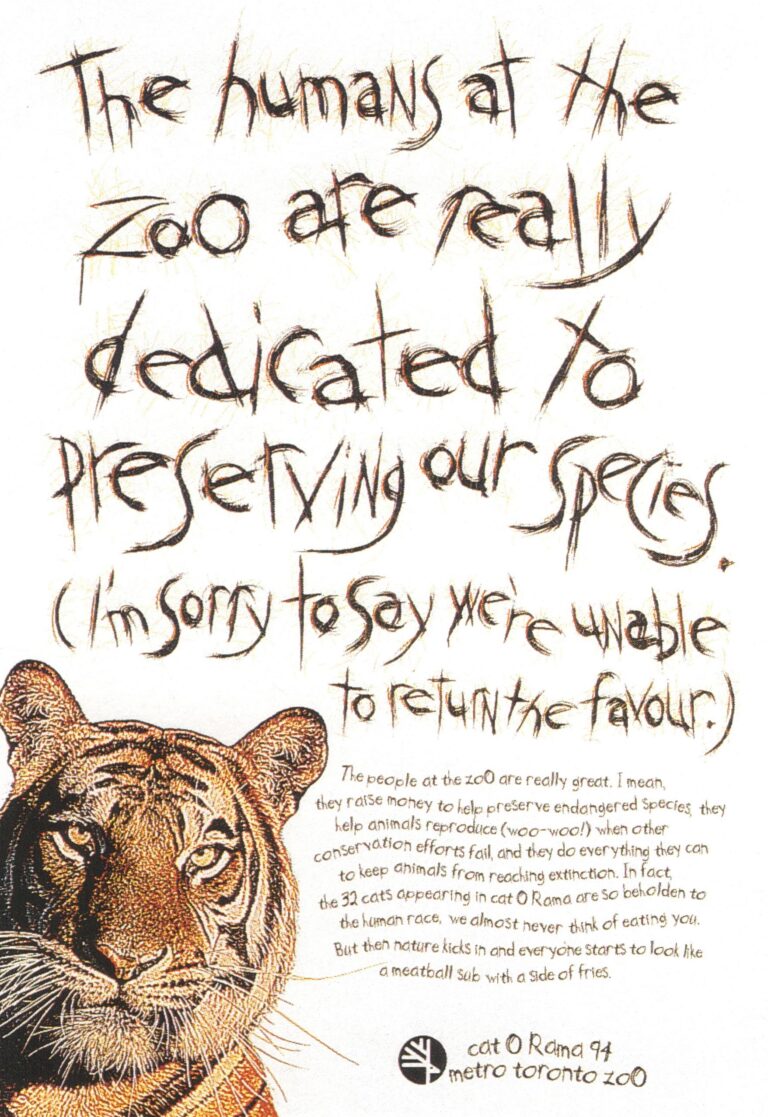 The humans at the
zoo are really
dedicated to
preserving our species.
(I'm sorry to say we're unable
to return the favour.)
The people at the zoo are really great. I mean,
they raise money to help preserve endangered species, they
help animals reproduce (woo-woo!) when other
conservation efforts fail, and they do everything they can
to keep animals from reaching extinction. In fact,
the 32 cats appearing in cat O Rama are so beholden to
the human race, we almost never think of eating you.
But then nature kicks in and everyone starts to look like
a meatball sub with a side of fries.
cat O Rama 94
metro toronto zoo